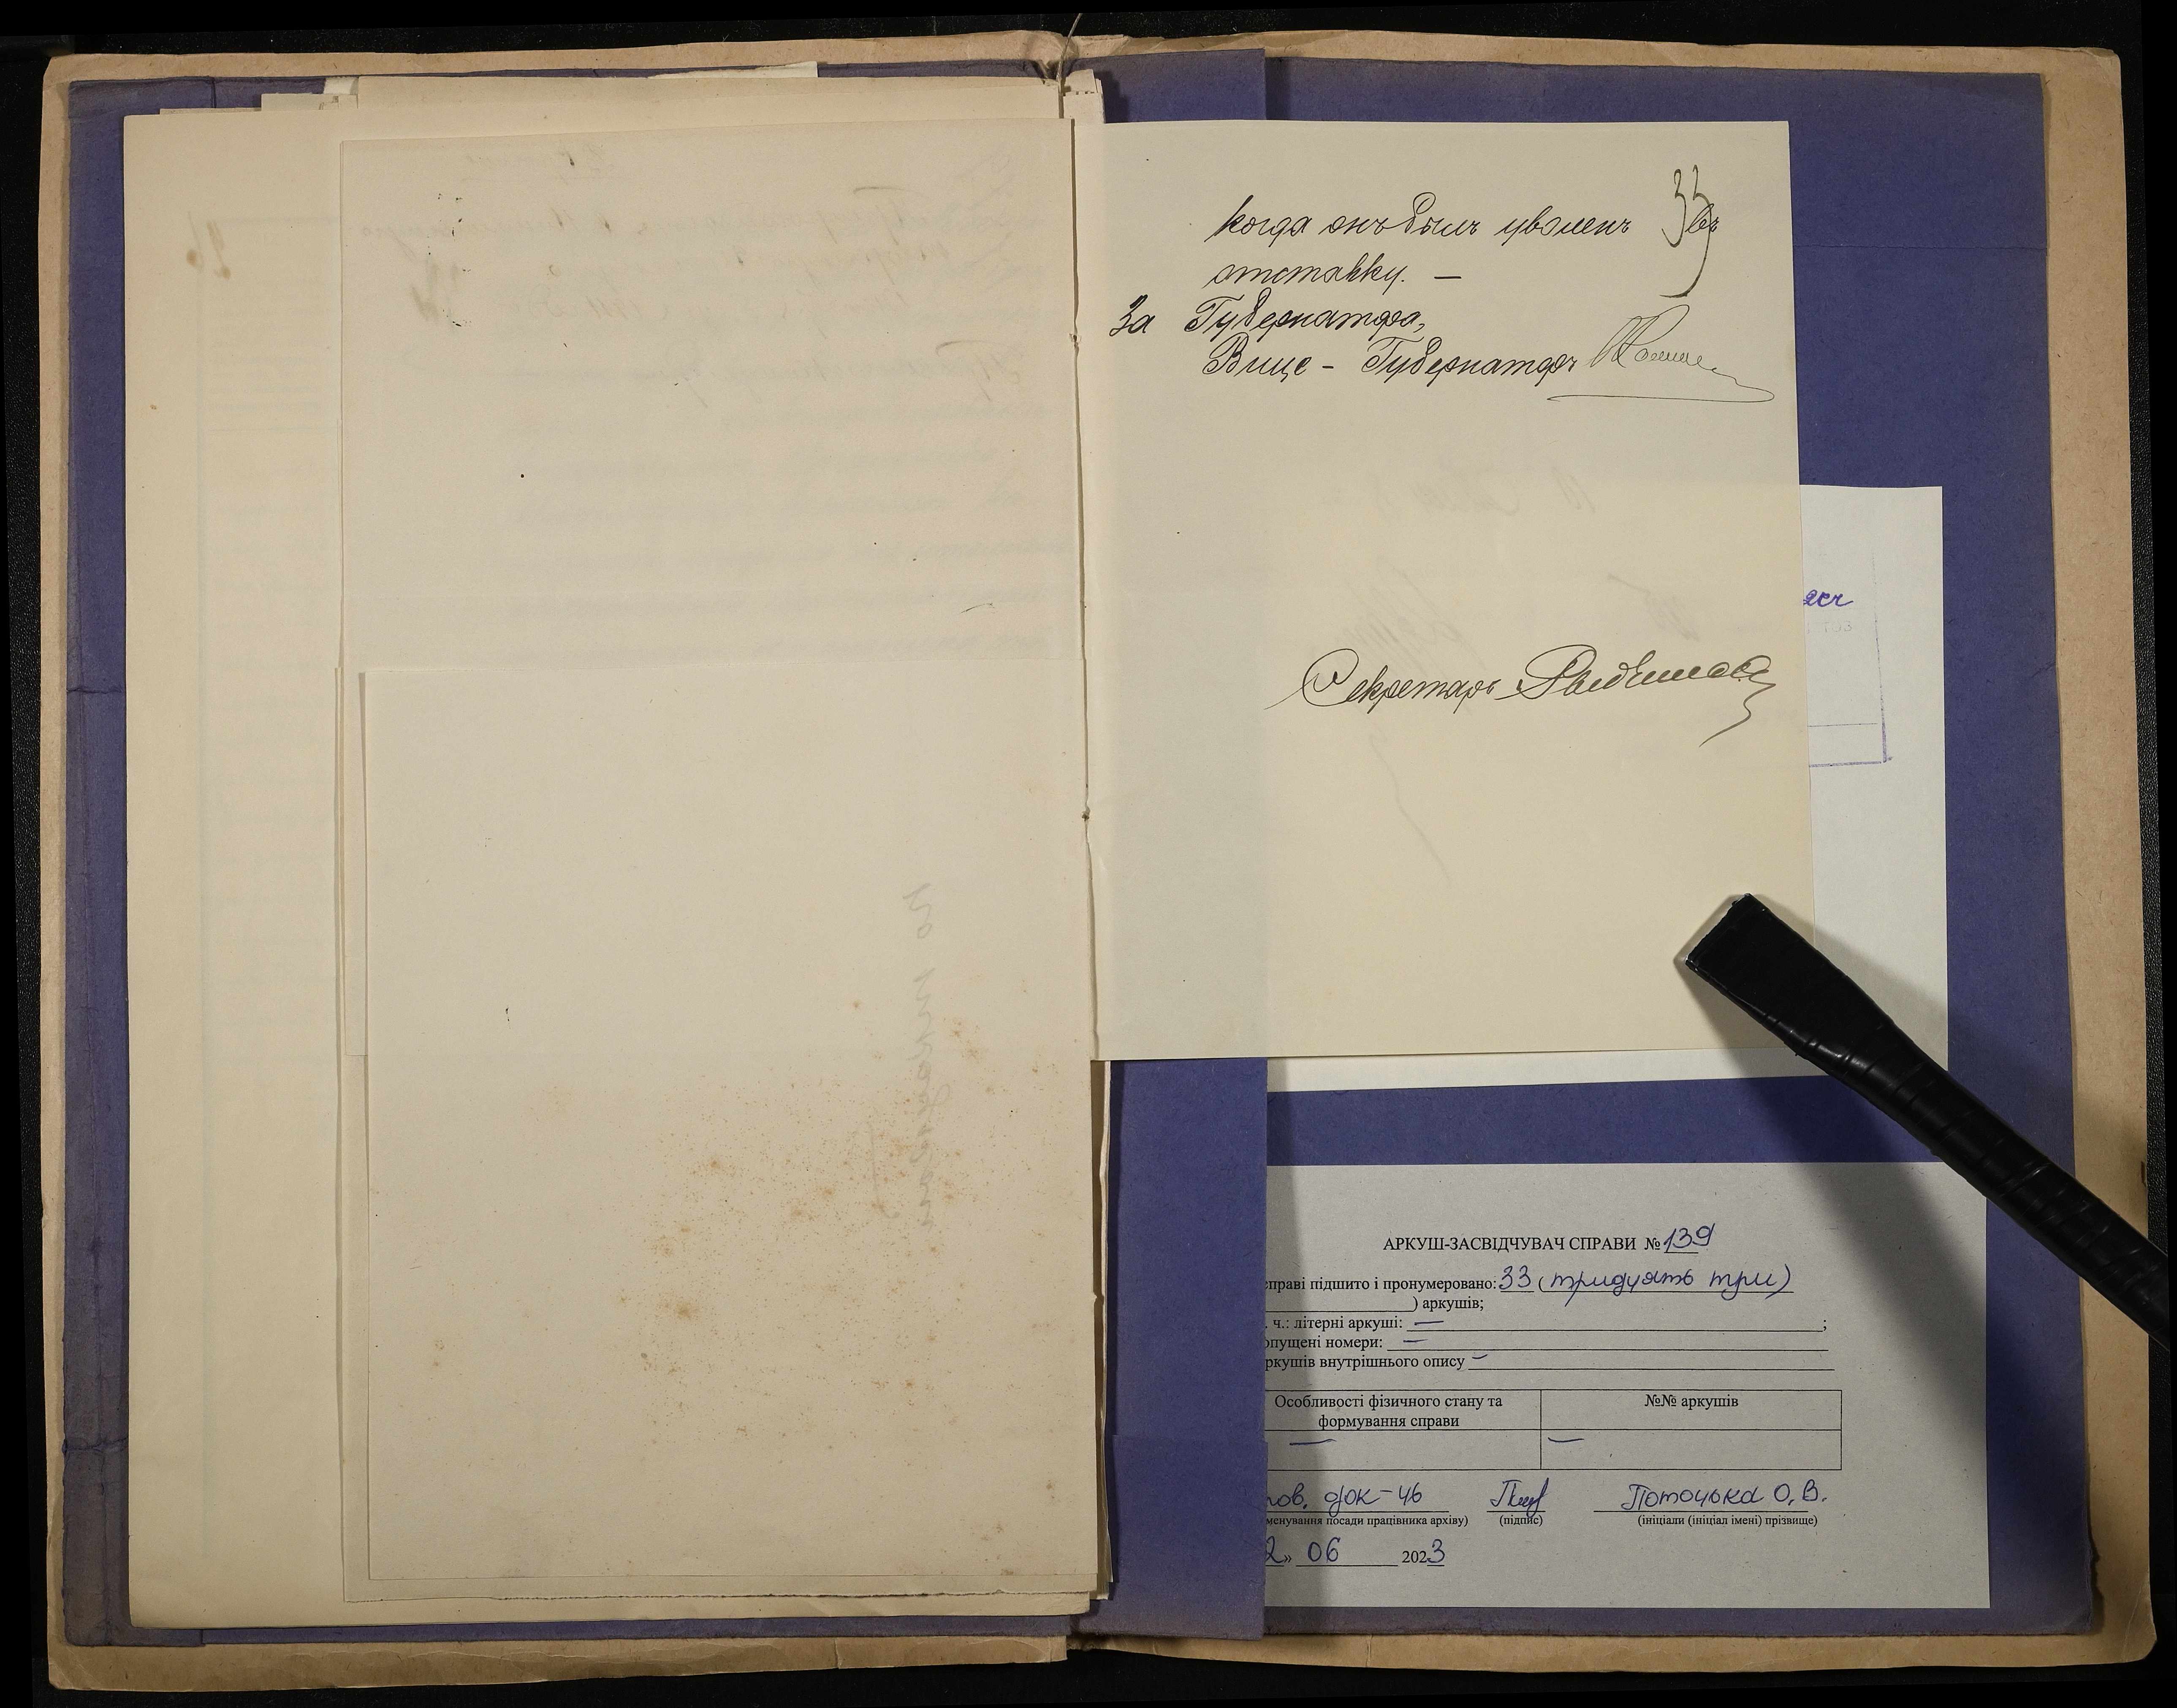 33
когда онъ былъ уволенъ въ
отставку. —
За Губернатора,
Вице - Губернаторъ
Секретарь
АРКУШ-ЗАСВІДЧУВАЧ СПРАВИ № 139
справі підшито і пронумеровано: 33 (тридцять три)
) аркушів;
. ч.: літерні аркуші: — ;
опущені номери: —
ркушів внутрішнього опису —
Особливості фізичного стану та формування справи
№№ аркушів
— —
пов. док-тів Поточька О.В.
менування посади працівника архіву) (підпис) (ініціали (ініціал імені) прізвище)
2» 06 2023